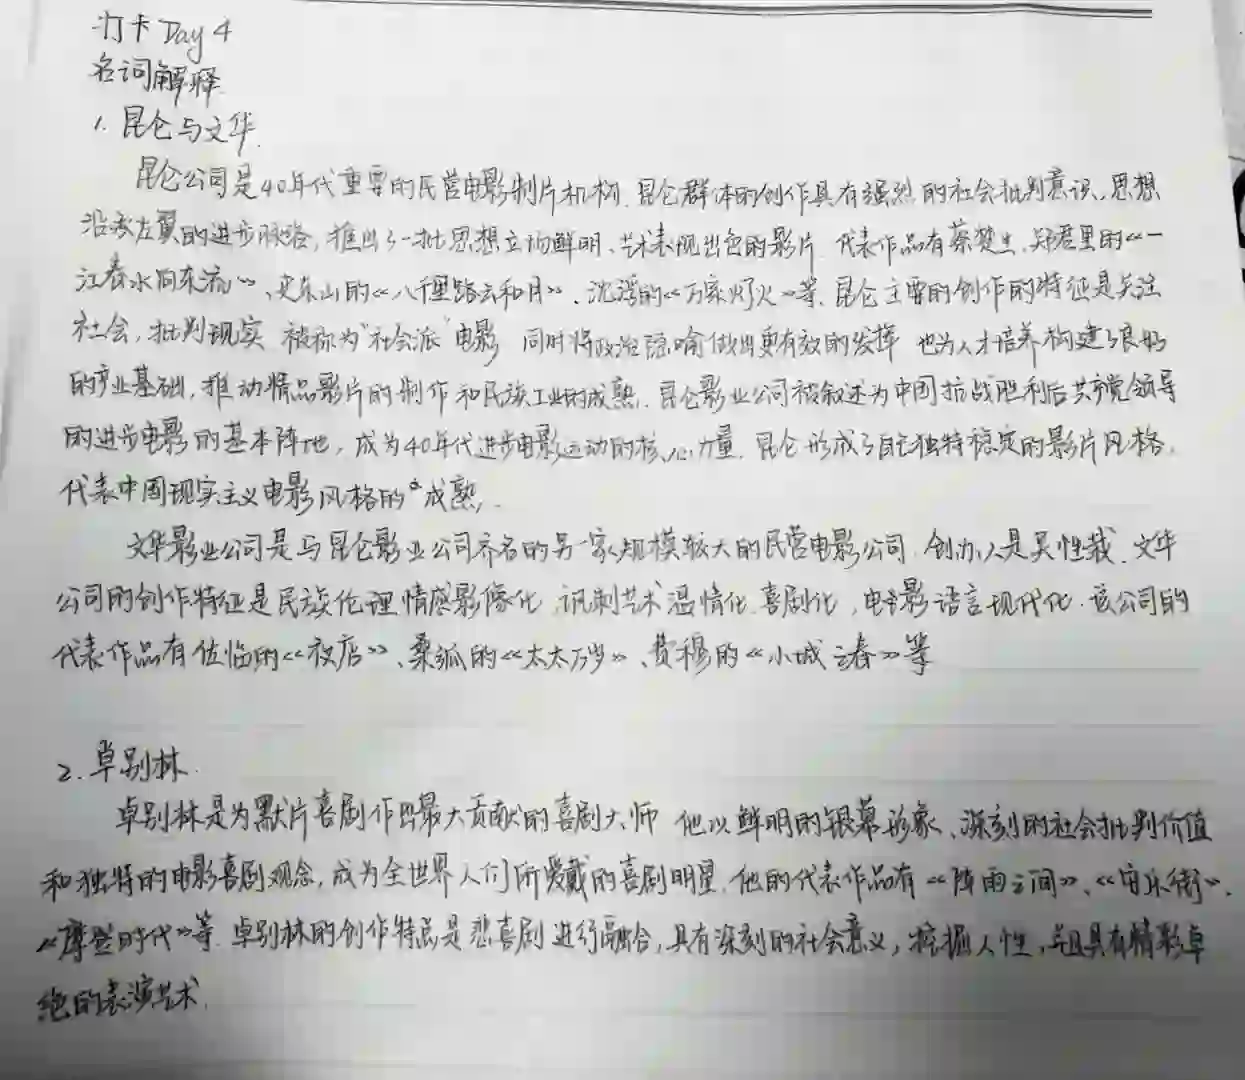 打卡 Day 4
名词解释
1. 昆仑与文华.
昆仑公司是40年代重要的民营电影制片机构. 昆仑群体的创作具有强烈的社会批判意识, 思想
沿袭左翼的进步脉络, 推出了一批思想立场鲜明、艺术表现出色的影片. 代表作品有蔡楚生、郑君里的《一
江春水向东流》、史东山的《八千里路云和月》、沈浮的《万家灯火》等. 昆仑主要的创作的特征是关注
社会, 批判现实 被称为"社会派"电影 同时将政治隐喻做出更有效的发挥 也为人才培养构建了良好
的产业基础, 推动精品影片的制作和民族工业的成熟. 昆仑影业公司被叙述为中国抗战胜利后共产党领导
的进步电影的基本阵地, 成为40年代进步电影运动的核心力量. 昆仑形成了自己独特稳定的影片风格,
代表中国现实主义电影风格的成熟.
文华影业公司是与昆仑影业公司齐名的另一家规模较大的民营电影公司. 创办人是吴性栽. 文华
公司的创作特征是民族伦理情感影像化, 讽刺艺术温情化、喜剧化, 电影语言现代化. 该公司的
代表作品有佐临的《夜店》、桑弧的《太太万岁》、费穆的《小城之春》等
2. 卓别林.
卓别林是为默片喜剧作出最大贡献的喜剧大师 他以鲜明的银幕形象、深刻的社会批判价值
和独特的电影喜剧观念, 成为全世界人们所爱戴的喜剧明星. 他的代表作品有《阵雨之间》、《安乐街》、
《摩登时代》等. 卓别林的创作特点是悲喜剧进行融合, 具有深刻的社会意义, 挖掘人性, 并且具有精彩卓
绝的表演艺术.